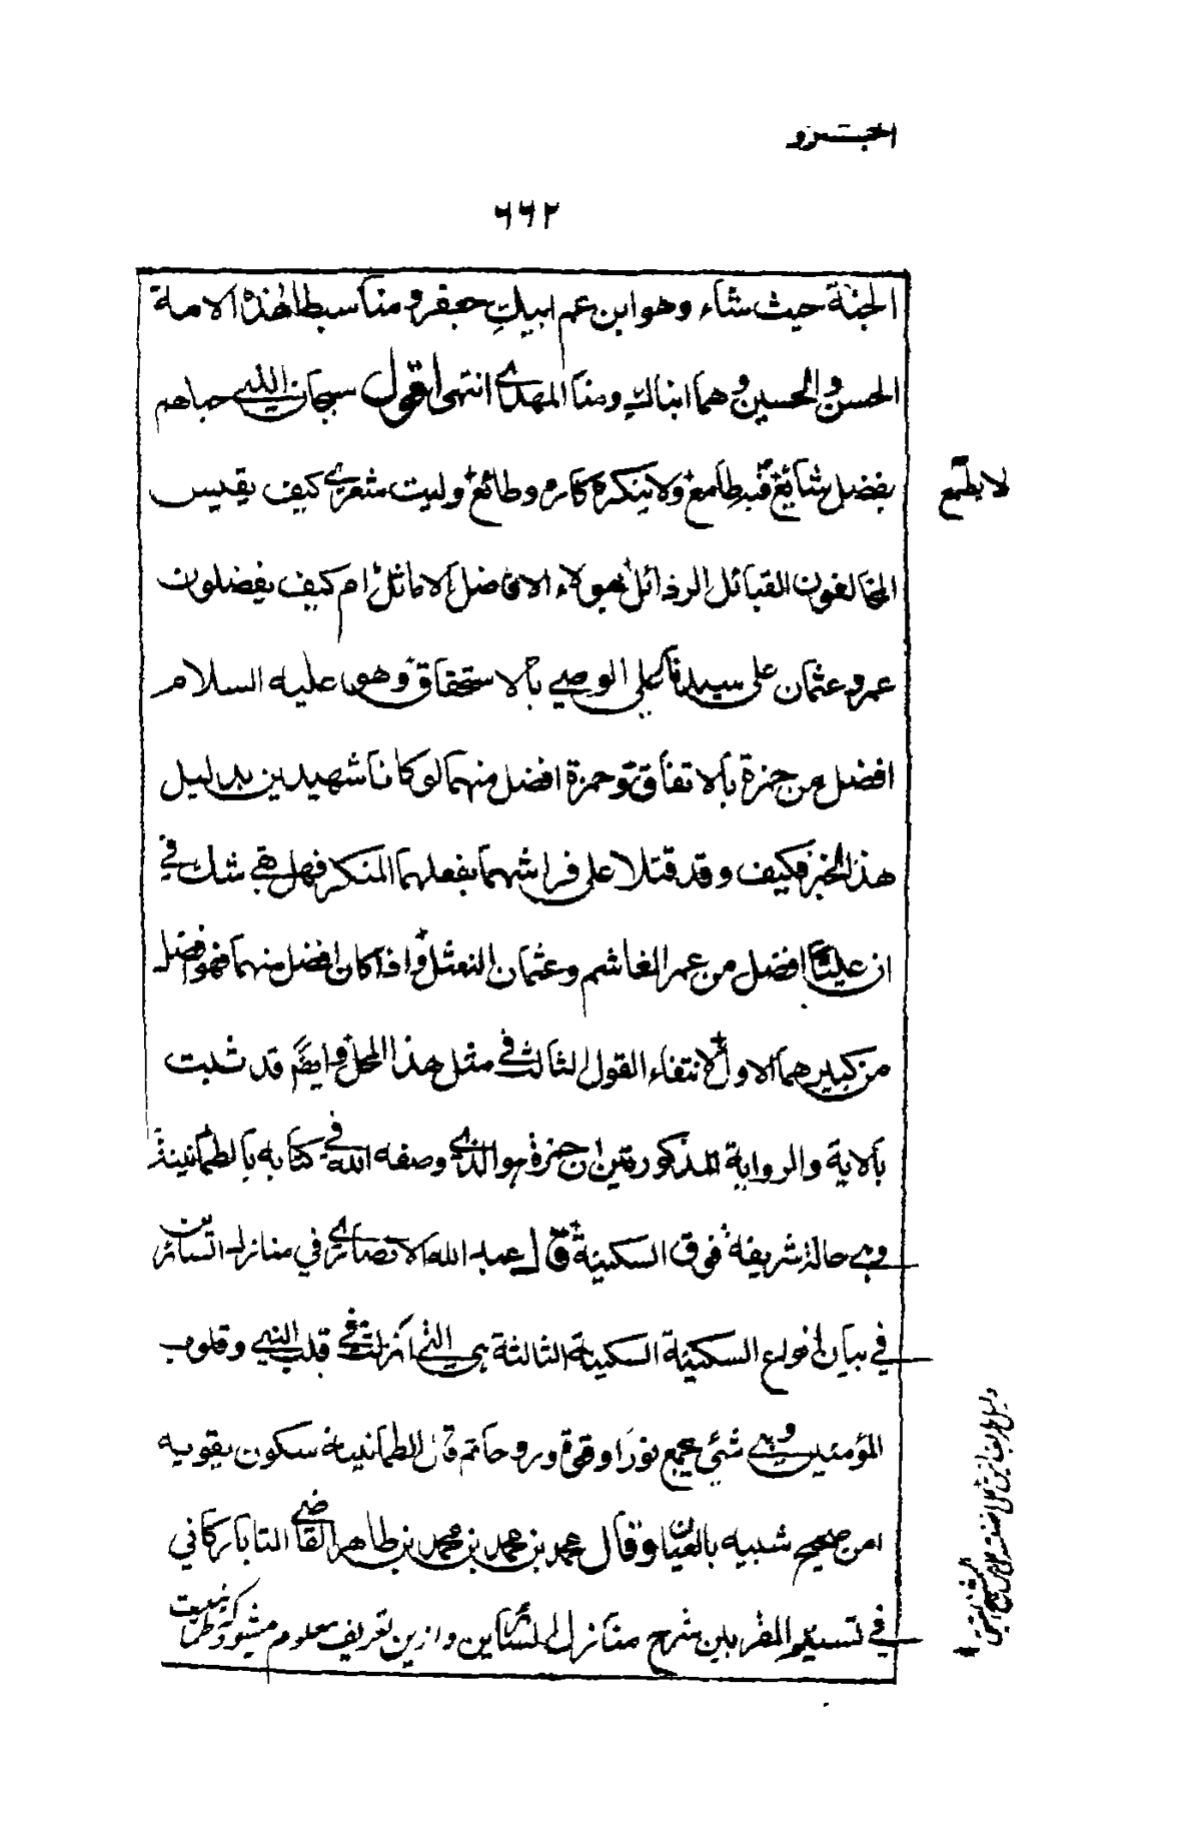 الجزو
٦٦٢
الجنة حيث شاء وهو ابن عم ابيك جعفر ومنا سبطا هذه الامة
الحسن والحسين وهما ابناك ومنا المهدي انتهى اقول سبحان الله حباهم
بفضل شائع فيه طامع ولا ينكره كاره وطائع وليت شعري كيف يقيس
لا يطمع
المخالفون القبائل الرذائل بهولاء الافاضل الاماثل ام كيف يفضلون
عمر وعثمان على سيدنا علي الوصي بالاستحقاق وهو عليه السلام
افضل من حمزة بالاتفاق وحمزة افضل منهما لو كانا شهيدين بدليل
هذا الخبز فكيف وقد قتلا على فراشهما بفعلهما المنكر فهل بقي شك في
ان عليا افضل من عمر الغاشم وعثمان النعثل واذا كان افضل منهما فهو افضل
من كبيرهما الاول لانتفاء القول الثالث في مثل هذا المحل وايضا قد ثبت
بالاية والرواية المذكورتين ان حمزة هو الذي وصفه الله في كتابه بالطمانينة
وهي حالة شريفة فوق السكينة قال عبد الله الانصاري في منازل السائرين
في بيان انواع السكينة السكينة الثالثة هي التي انزلت في قلب النبي وقلوب
المؤمنين وهي شئ يجمع نورا وقوة وروحا ثم قال الطمانينة سكون يقويه
امن صحيح شبيه بالعيان وقال محمد بن محمد بن محمد بن طاهر القاضي التاباركاني
في تسنيم المقربين شرح منازل السائرين وازين تعريف معلوم ميشود كه نسبت